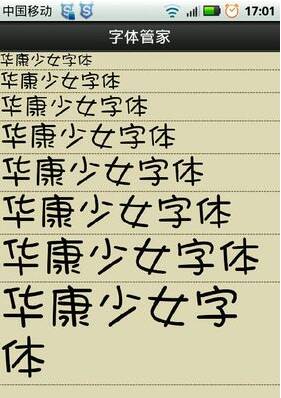 中国移动 17:01
字体管家
华康少女字体
华康少女字体
华康少女字体
华康少女字体
华康少女字体
华康少女字体
华康少女字体
华康少女字
体